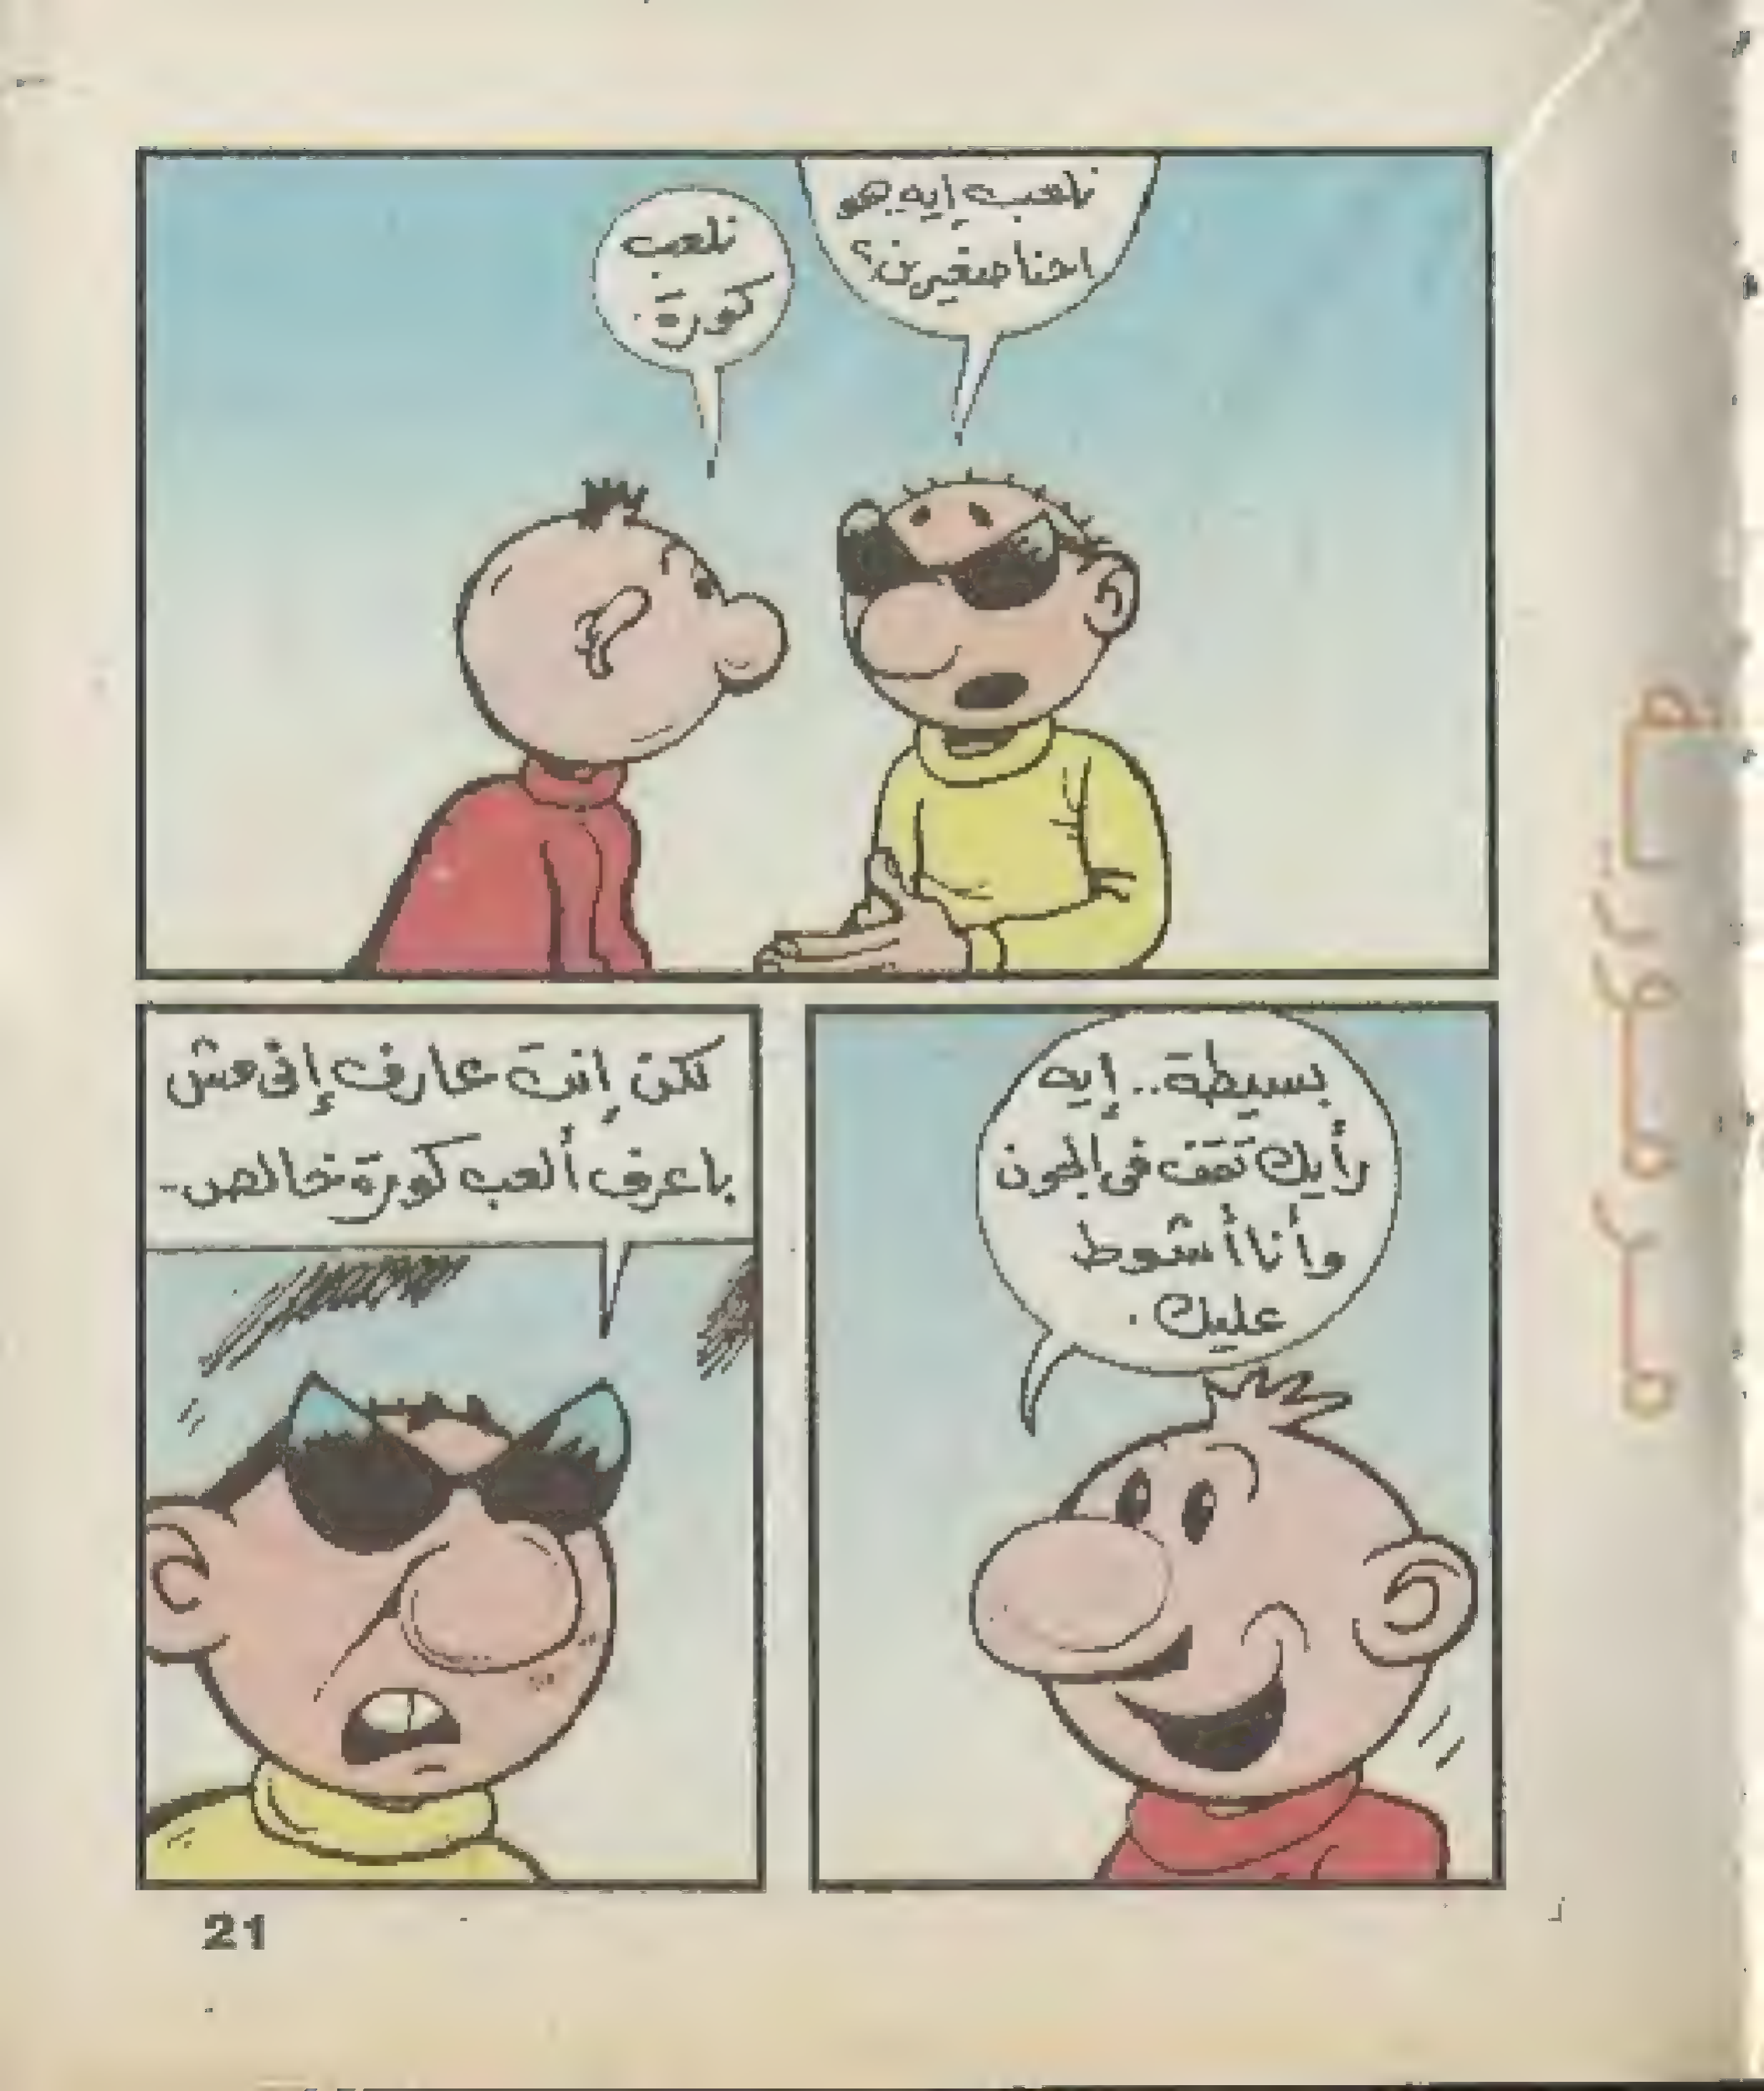 نلعب إيه هو
احنا صغيرين؟
نلعب
كورة.
بسيطة.. إيه
رأيك تقف في الجون
وأنا أشوط
عليك.
لكن إنت عارف إنى مش
باعرف ألعب كورة خالص..
21